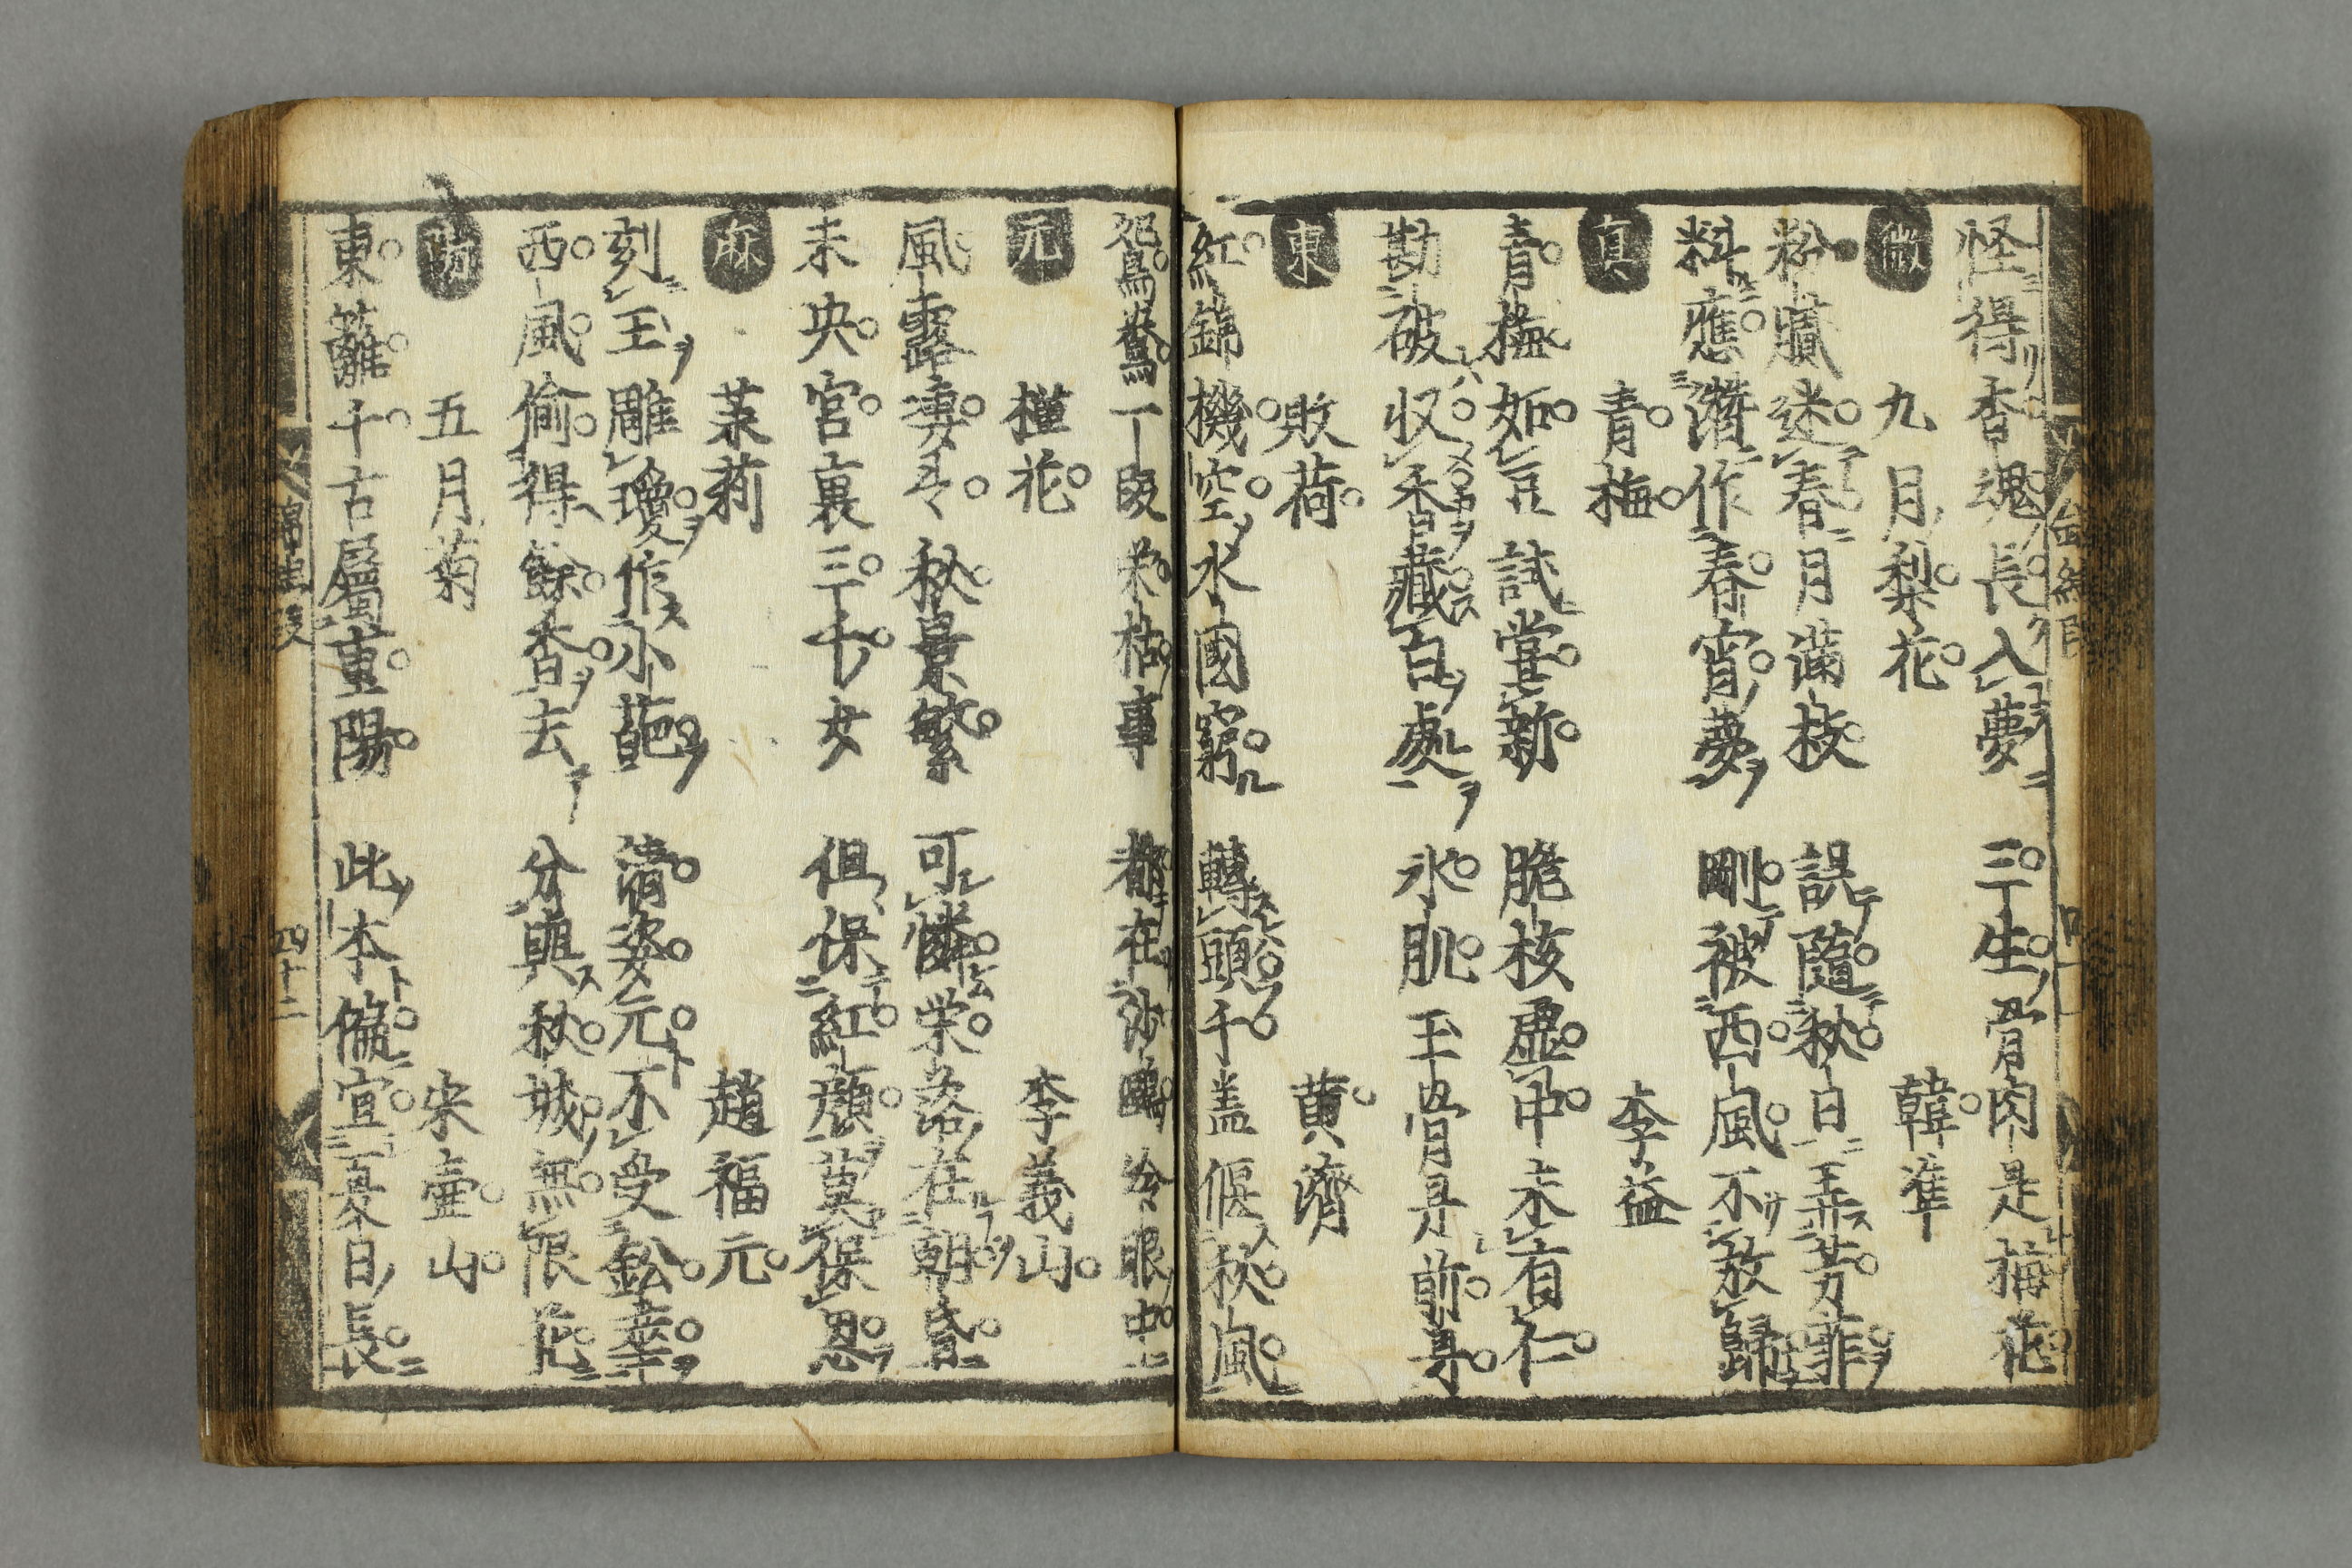 怪得香魂長入夢 三生骨肉是梅花
微 九月梨花 韓準
粉膩迷春月滿枝 誤隨秋日弄芳菲
料應潛作春宵夢 剛被西風不放歸
真 青梅 李益
青梅如豆試嘗新 脆核虛中未有仁
勘破収香藏白處 氷肌玉骨是前身
東 敗荷 黄濟
紅錦機空水國窮 轉頭千盖偃秋風
鴛鴦一段栄枯事 都在沙鷗冷眼中
元 槿花 李義山
風露凄〻秋景繁 可憐栄落在朝昏
未央宮裏三千女 但保紅顔莫保恩
麻 茉莉 趙福元
刻玉雕瓊作小葩 清姿元不受鈆華
西風偷得餘香去 分與秋城無限花
陽 五月菊 宋壷山
東籬千古屬重陽 此本偏宜夏日長
四十二